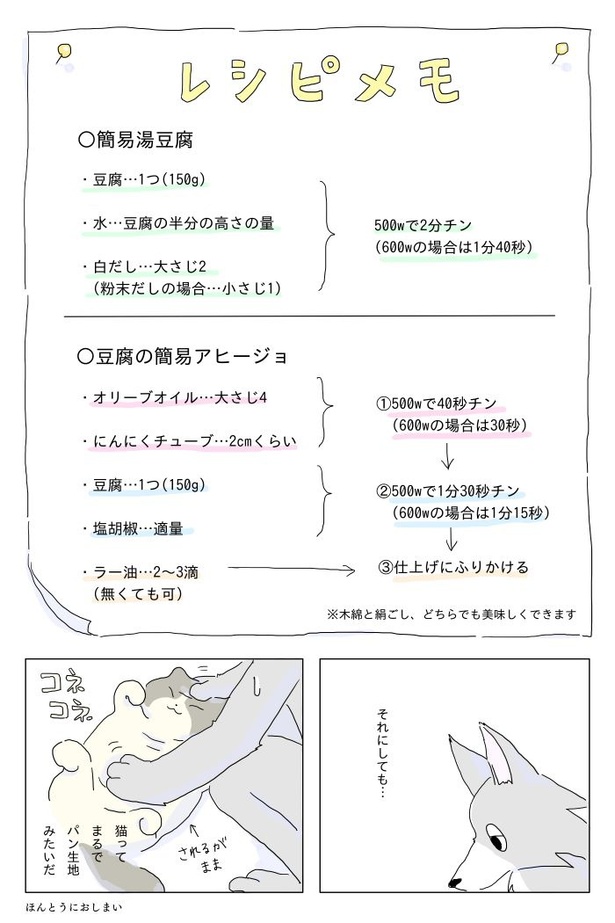 レシピメモ
〇簡易湯豆腐
・豆腐…1つ(150g)
・水…豆腐の半分の高さの量
・白だし…大さじ2
(粉末だしの場合…小さじ1)
500wで2分チン
(600wの場合は1分40秒)
〇豆腐の簡易アヒージョ
・オリーブオイル…大さじ4
・にんにくチューブ…2cmくらい
①500wで40秒チン
(600wの場合は30秒)
・豆腐…1つ(150g)
・塩胡椒…適量
②500wで1分30秒チン
(600wの場合は1分15秒)
・ラー油…2〜3滴
(無くても可)
③仕上げにふりかける
※木綿と絹ごし、どちらでも美味しくできます
それにしても…
コネ
コネ
猫って
まるで
パン生地
みたいだ
されるが
まま
ほんとうにおしまい